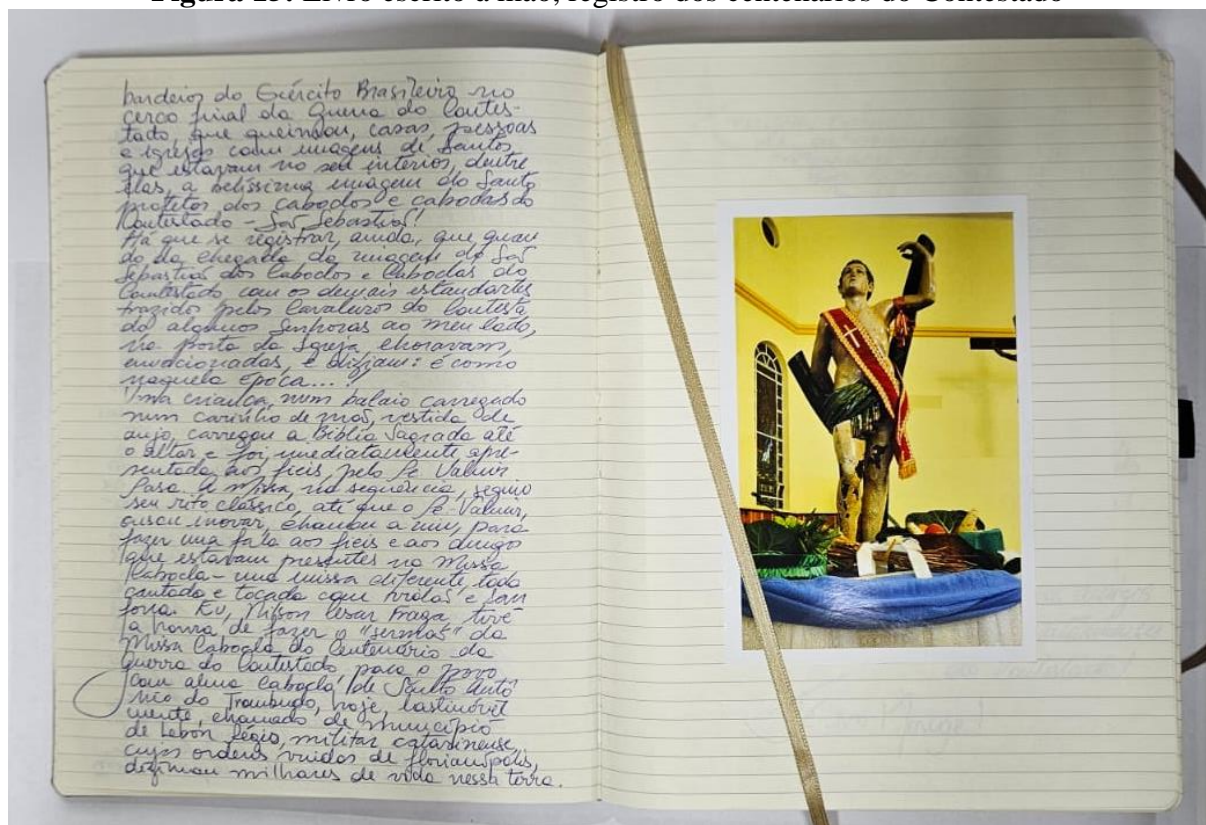 Figura 15: Livro escrito à mão, registro dos centenários do Contestado
bardeios do Exército Brasileiro no
cerco final da Guerra do Contes-
tado, que queimou, casas, pessoas
e igrejas com imagens de Santos
que estavam no seu interior, dentre
elas, a belíssima imagem do Santo
protetor dos caboclos e caboclas do
Contestado - São Sebastião!
Há que se registrar, ainda, que quan
do da chegada da imagem do São
Sebastião dos Caboclos e Caboclas do
Contestado com os demais estandartes
trazidos pelos Cavaleiros do Contesta
do algumas senhoras ao meu lado,
na porta da Igreja choravam,
emocionadas, e diziam: é como
naquela época...!
Uma criança, num balaio carregado
num carrinho de mão, vestida de
anjo, carregou a Bíblia Sagrada até
o altar e foi imediatamente apre-
sentada aos fieis pelo Pe. Valmir
Pasa. A missa, na sequência, seguiu
seu rito clássico, até que o Pe. Valmir,
ousou inovar, chamou a mim, para
fazer uma fala aos fieis e aos
que estavam presentes na Missa
Cabocla - uma missa diferente, toda
cantada e tocada com violas e san
fona. Eu, Nilson Cesar Fraga, tive
a honra de fazer o "sermão" da
Missa Cabocla do Centenário da
Guerra do Contestado, para o povo
com alma cabocla, de Santo Antô
nio do Trombudo, hoje, lastimavel
mente, chamado de município
de Lebon Régis, militar catarinense,
cujas ordens vindas de Florianópolis,
dizimou milhares de vida nessa terra.